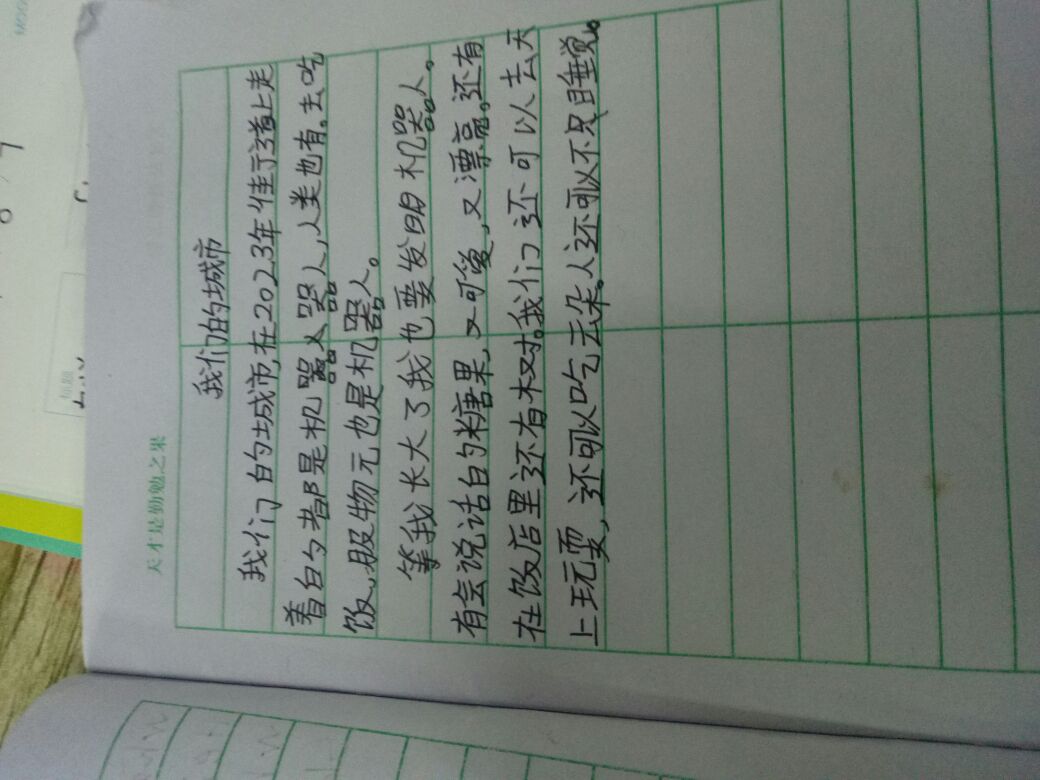 天才是勤勉之果
我们的城市
我们的城市,在2023年住行道上走
着的都是机器人器人,人类也有。去吃
饭,服物元也是机器人。
等我长大了我也要发明机器人。
有会说话的糖果,又可爱,又漂亮。还有
在饭店里还有权对。我们还可以去天
上玩耍,还可以吃云朵。人还可以不只睡觉。